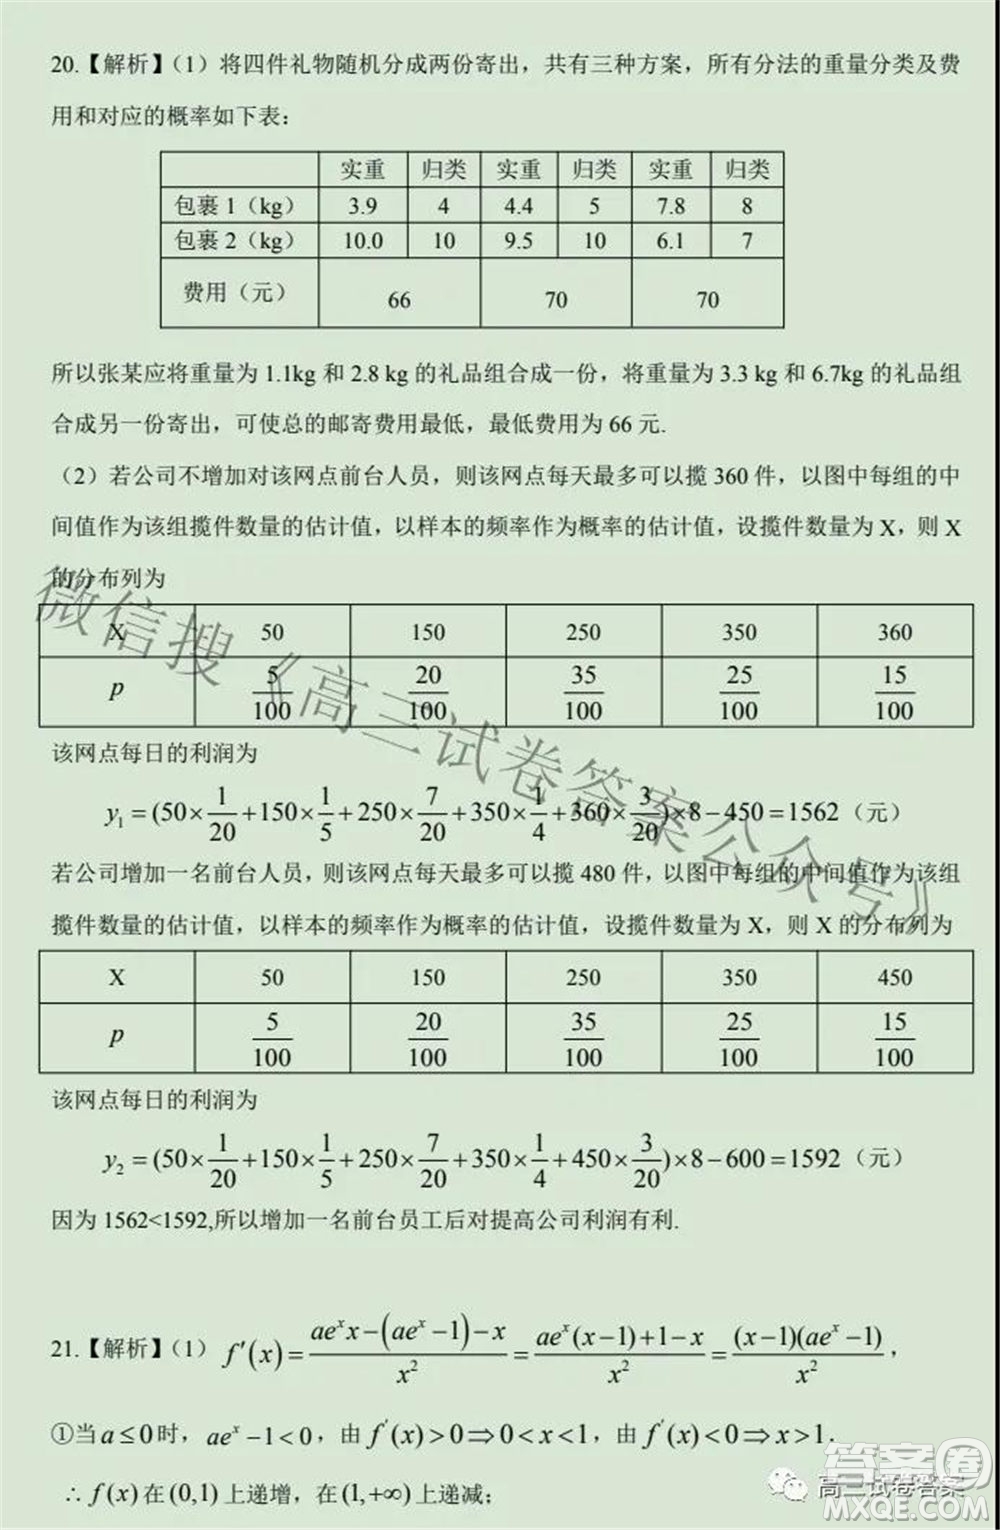 20.【解析】（1）将四件礼物随机分成两份寄出，共有三种方案，所有分法的重量分类及费
用和对应的概率如下表：
实重 归类 实重 归类 实重 归类
包裹 1（kg） 3.9 4 4.4 5 7.8 8
包裹 2（kg） 10.0 10 9.5 10 6.1 7
费用（元） 66 70 70
所以张某应将重量为 1.1kg 和 2.8 kg 的礼品组合成一份，将重量为 3.3 kg 和 6.7kg 的礼品组
合成另一份寄出，可使总的邮寄费用最低，最低费用为 66 元.
（2）若公司不增加对该网点前台人员，则该网点每天最多可以揽 360 件，以图中每组的中
间值作为该组揽件数量的估计值，以样本的频率作为概率的估计值，设揽件数量为 X，则 X
的分布列为
X 50 150 250 350 360
p 5/100 20/100 35/100 25/100 15/100
该网点每日的利润为
y₁=(50×1/20+150×1/5+250×7/20+350×1/4+360×3/20)×8−450=1562（元）
若公司增加一名前台人员，则该网点每天最多可以揽 480 件，以图中每组的中间值作为该组
揽件数量的估计值，以样本的频率作为概率的估计值，设揽件数量为 X，则 X 的分布列为
X 50 150 250 350 450
p 5/100 20/100 35/100 25/100 15/100
该网点每日的利润为
y₂=(50×1/20+150×1/5+250×7/20+350×1/4+450×3/20)×8−600=1592（元）
因为 1562<1592,所以增加一名前台员工后对提高公司利润有利.
21.【解析】（1）f′(x)=(ae^x x−(ae^x−1)−x)/x²=(ae^x(x−1)+1−x)/x²=((x−1)(ae^x−1))/x²，
①当a≤0时，ae^x−1<0，由f′(x)>0⇒0<x<1，由f′(x)<0⇒x>1.
∴f(x)在(0,1)上递增，在(1,+∞)上递减；
微信搜《高三试卷答案公众号》
高三试卷答案
答案圈
MXQE.COM